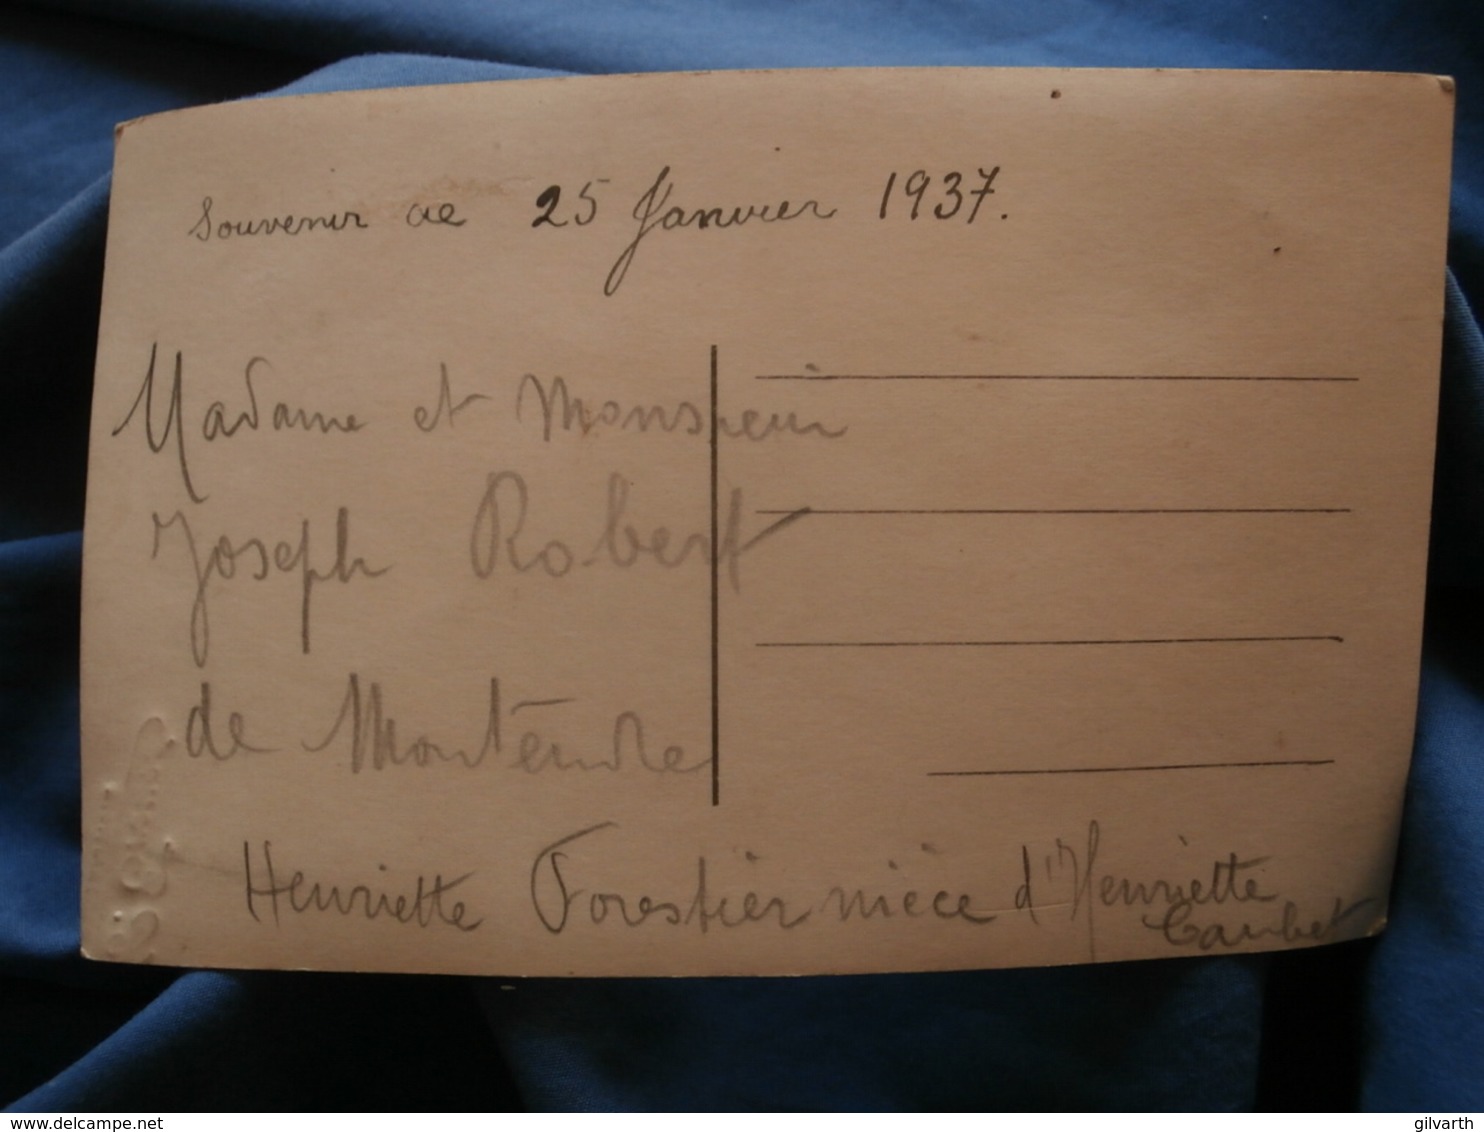 Souvenir de 25 Janvier 1937.
Madame et Monsieur
Joseph Robert
de Montendre
Henriette Forestier nièce d'Henriette
Caubet
delcampe.net
gilvarth